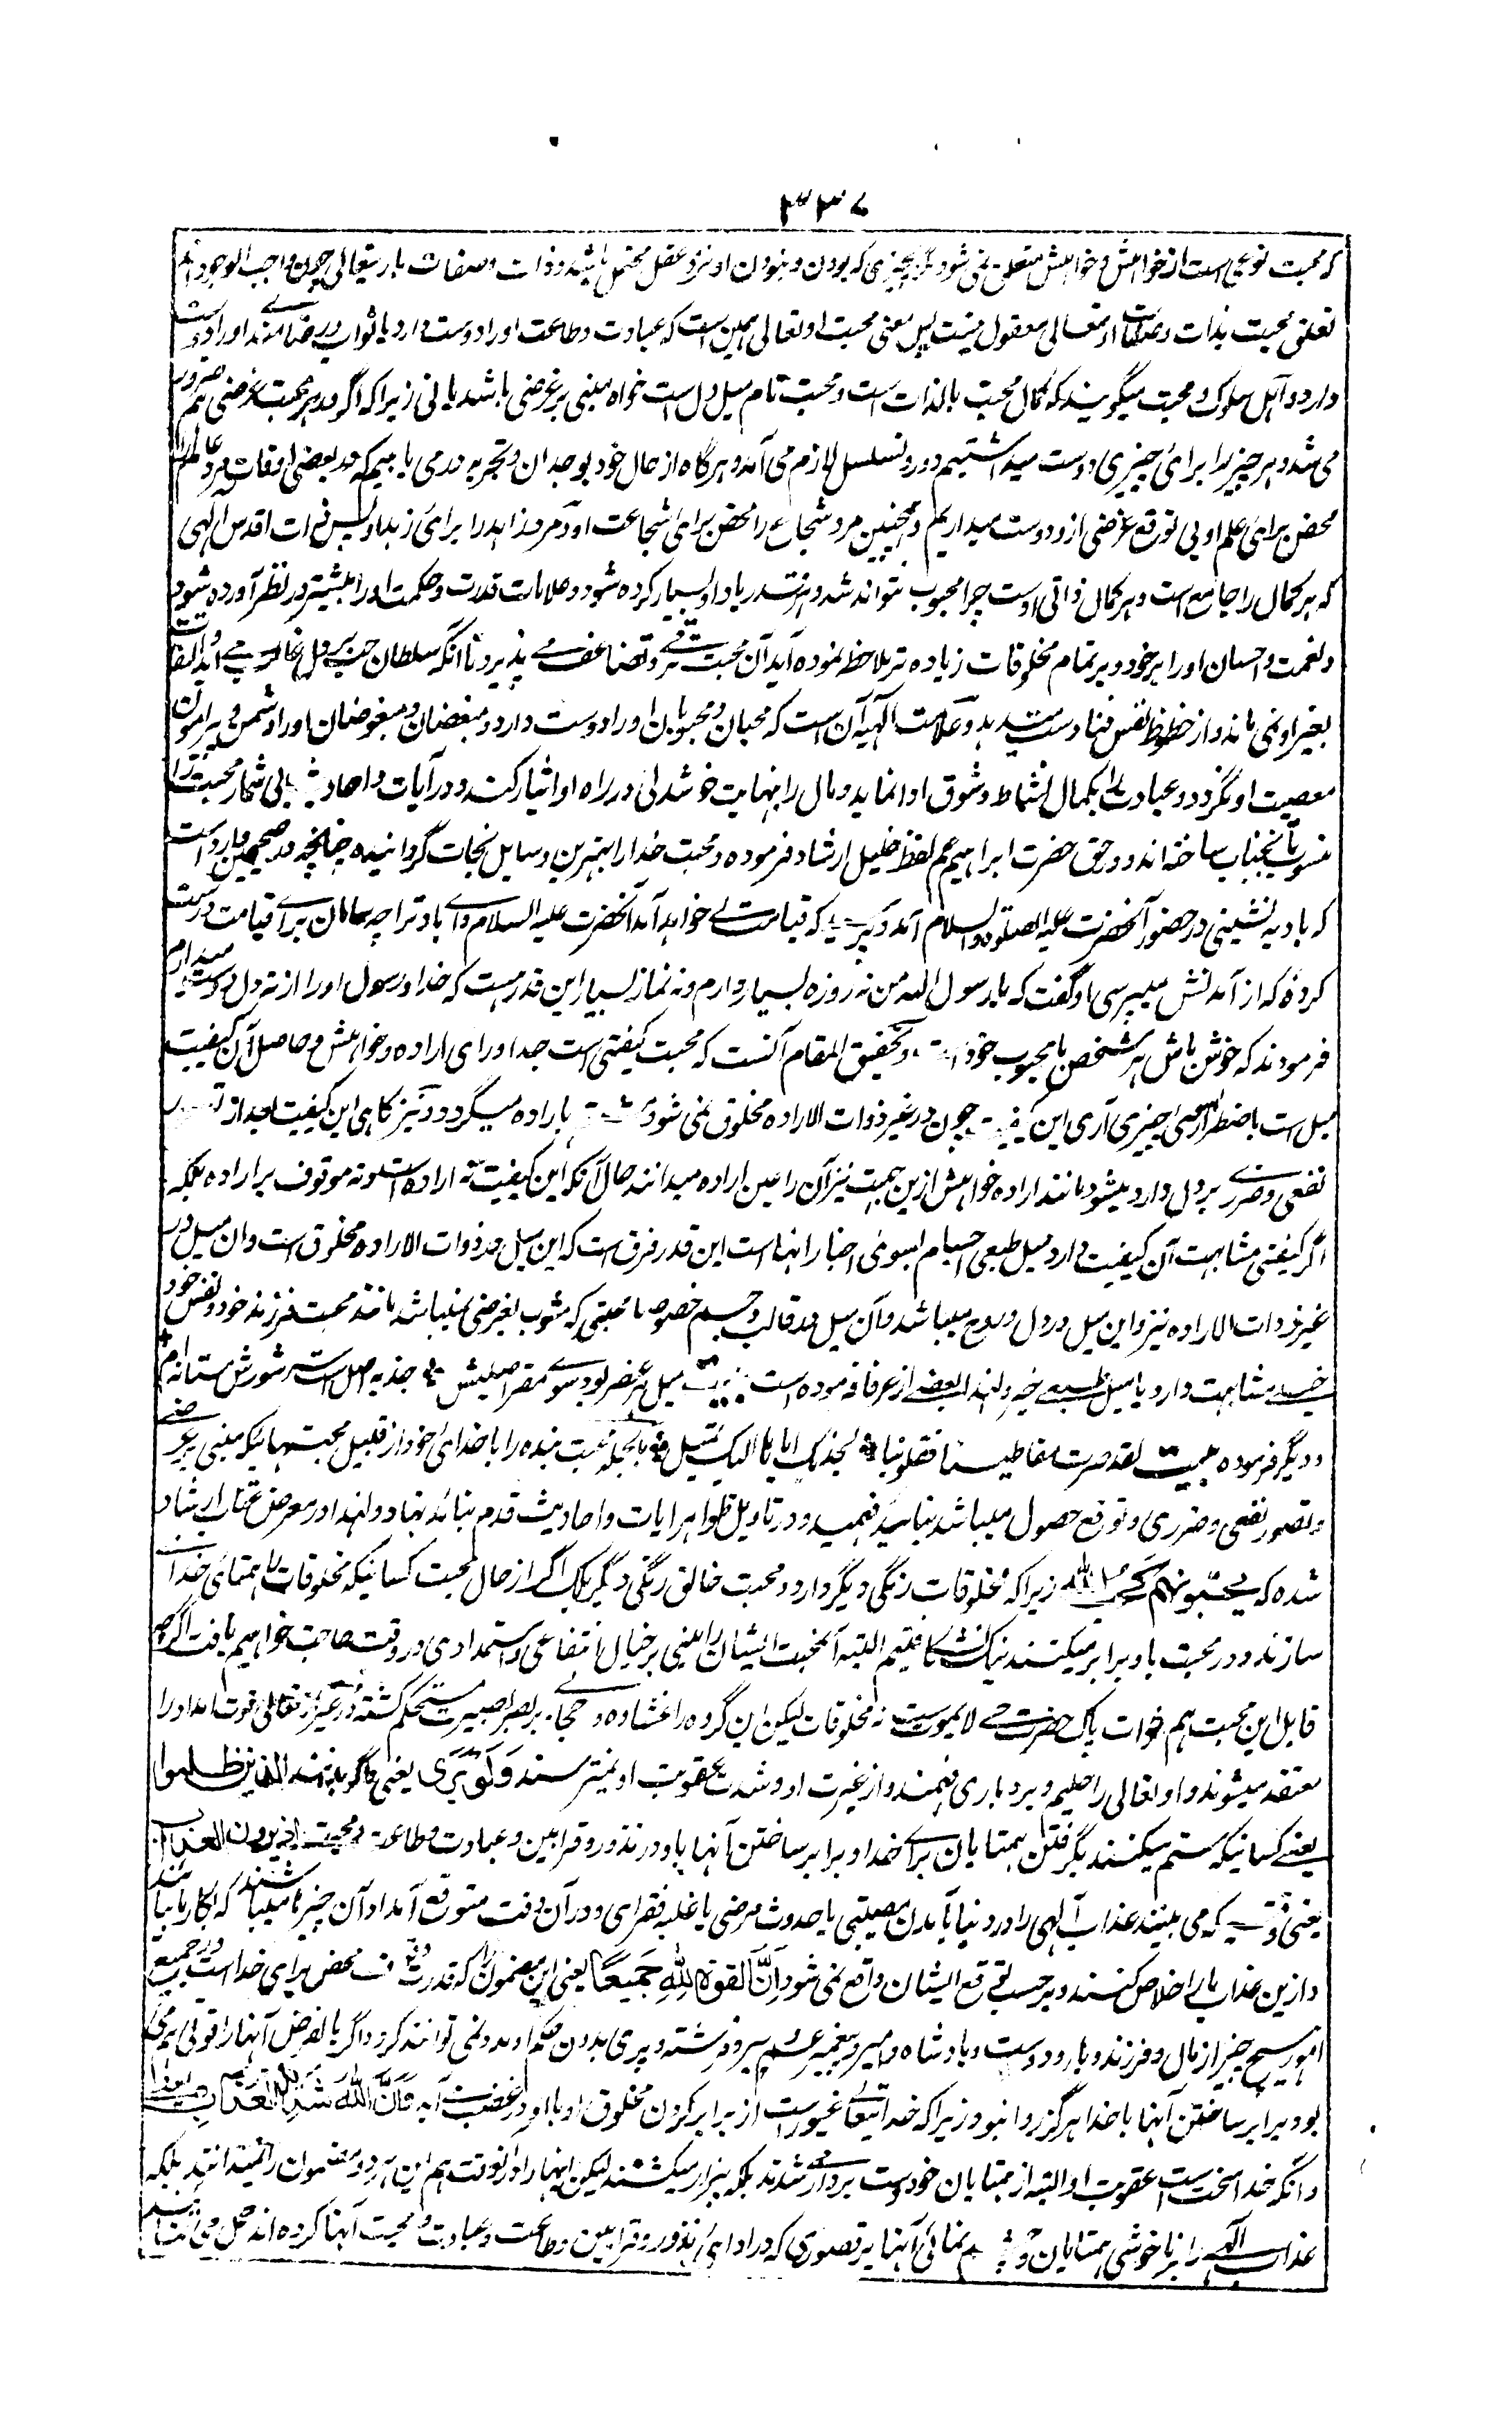 ۳۳۷
که محبت نوعی است از خواهش و خواهش متعلق نمی شود مگر بچیزی که بودن و نبودن او نزد عقل محتمل باشد و ذات و صفات باریتعالی چون واجب الوجود اند
تعلق محبت بذات و صفات او تعالی معقول نیست پس معنی محبت او تعالی همین است که عبادت و طاعت او را دوست دارد یا ثواب و رضامندی او را دوست
دارد و اهل سلوک و محبت میگویند که کمال محبت بالذات است و محبت نام میل دل است خواه مبنی بر غرضی باشد یا نی زیرا که اگر در هر محبت غرضی هم ضرور
می شد و هر چیز را برای چیزی دوست میداشتیم دور و تسلسل لازم می آمد و هرگاه از حال خود بوجدان و تجربه در می یابیم که در بعضی اوقات مرد عالم را
محض برای علم او بی توقع غرضی ازو دوست میداریم و همچنین مرد شجاع را محض برای شجاعت او و مرد زاهد را برای زهد او پس ذات اقدس الهی
که هر کمال را جامع است و هر کمال ذاتی اوست چرا محبوب نتواند شد و هر قدر یاد او بسیار کرده شود و علامات قدرت و حکمت او را بیشتر در نظر آورده شود
و نعمت و احسان او را بر خود و بر تمام مخلوقات زیاده تر ملاحظه نموده آید آن محبت ترقی و تضاعف می پذیرد تا آنکه سلطان حب بر دل غالب می آید و التفات
بغیر او نمی ماند و از حظوظ نفس فنا دست میدهد و علامت محبت الهیه آن است که محبان و محبوبان او را دوست دارد و مبغضان و مبغوضان او را دشمن و پیرامون
معصیت او نگردد و عبادت را بکمال نشاط و شوق ادا نماید و مال را بنهایت خوشدلی در راه او ایثار کند و در آیات و احادیث بی شمار محبت را
منسوب بآنجناب ساخته اند و در حق حضرت ابراهیم عم لفظ خلیل ارشاد فرموده و محبت خدا را بهترین وسایل نجات گردانیده چنانچه در صحیحین وارد است
که بادیه نشینی در حضور آنحضرت علیه الصلوة والسلام آمد و پرسید که قیامت کی خواهد آمد آنحضرت علیه السلام فرمودند ترا چه سامان برای قیامت درست
کردهٔ که از آمدنش میپرسی او گفت که یا رسول الله من نه روزه بسیار دارم و نه نماز بسیار این قدر هست که خدا و رسول او را از ته دل دوست میدارم
فرمودند که خوش باش هر شخص با محبوب خود است و تحقیق المقام آنست که محبت کیفیتی است جدا ورای اراده و خواهش و حاصل آن کیفیت
میل است باضطرار سوی چیزی آری این کیفیت چون در غیر ذوات الاراده مخلوق نمی شود باراده میگردد و نیز گاهی این کیفیت بعد از تصور
نفعی و ضرری بر دل وارد میشود مانند اراده و خواهش ازین جهت نیز آن را عین اراده میدانند حال آنکه این کیفیت نه اراده است و نه موقوف بر اراده بلکه
اگر کیفیتی مشابهت آن کیفیت دارد میل طبعی اجسام بسوی احیاز انها است این قدر فرق است که این میل در ذوات الاراده مخلوق است و ان میل در
غیر ذوات الاراده نیز و این میل در دل و روح میباشد و آن میل در قالب و جسم خصوصا محبتی که مشوب بغرضی نمیباشد مانند محبت فرزند خود و نفس خود
خیلی مشابهت دارد با میل طبعی و لهذا بعضی از عرفا فرموده است بیت میل هر عنصر بود سوی مقر اصلیش جذبه اصل است شورش مستانه ام
و دیگر فرموده بیت لقد صرت مغناطیسنا فقلوبنا لجذبک ایانا الیک تمیل بالجمله محبت بنده را با خدای خود از قبیل محبتهائیکه مبنی بر غرضی
و تصور نفعی و ضرری و توقع حصول میباشد نباید فهمید و در تاویل ظواهر ایات و احادیث قدم نباید نهاد و لهذا در معرض عتاب ارشاد
شده که یحبونهم کحب الله زیرا که مخلوقات رنگی دیگر دارد و محبت خالق رنگی دیگر بلکه اگر از حال محبت کسانیکه مخلوقات را همتای خدا
سازند و در محبت باو برابر میکنند نیک بشگافیم البته آن محبت ایشان را مبنی بر خیال انتفاعی و استمدادی در وقت حاجت خواهیم یافت اگرچه
قابل این محبت هم ذات پاک حضرت حی لایموت است نه مخلوقات لیکن این گروه را غشاوه و حجاب بر بصر بصیرت مستحکم گشته در غیر او تعالی قوت امداد را
معتقد میشوند و او تعالی را حلیم و بردباری فهمند و از غیرت او و شدت عقوبت او نمیترسند وَلَوْ یَرَی یعنی و اگر به بینند الَّذِینَ ظَلَمُوا
یعنی کسانیکه ستم میکنند بگرفتن همتایان برای خدا و برابر ساختن آنها باو در نذور و قرابین و عبادت و طاعت و محبت اِذ یَرَونَ العَذابَ
یعنی وقتی که می بینند عذاب آلهی را در دنیا بآمدن مصیبتی یا حدوث مرضی یا غلبه فقرای و در آن وقت متوقع آمداد آن چیزها میباشند که انکار مایا
و ازین عذاب مارا خلاص کنند و بر حسب توقع ایشان واقع نمی شود اَنَّ القُوَّةَ لِلهِ جَمِیعًا یعنی این مضمون را که قدرت و قوت محض برای خداست در جمیع
امور هیچ چیز از مال و فرزند و یار و دوست و بادشاه و امیر و پیغمبر و پیر و فرشته و پری بدون حکم او مدد نمی توانند کرد و اگر بالفرض آنها را قوتی هم می
بود برابر ساختن آنها با خدا هرگز روا نبود زیرا که خدایتعالی غیور است از برابر کردن مخلوق او با او در غضب می آید وَاَنَّ اللهَ شَدِیدُ العَذَابِ
و آنکه خدا سخت است عقوبت او البته از همتایان خود دست بردار می شدند بلکه بیزار میگشتند لیکن اینها را در انوقت هم این هر دو مضمون را نمیدانند بلکه
عذاب الهی را بر ناخوشی همتایان و چشم نمائی آنها بر تصوری که در ادای نذور و قرابین و طاعت و عبادت و محبت آنها کرده اند حمل می نمایند